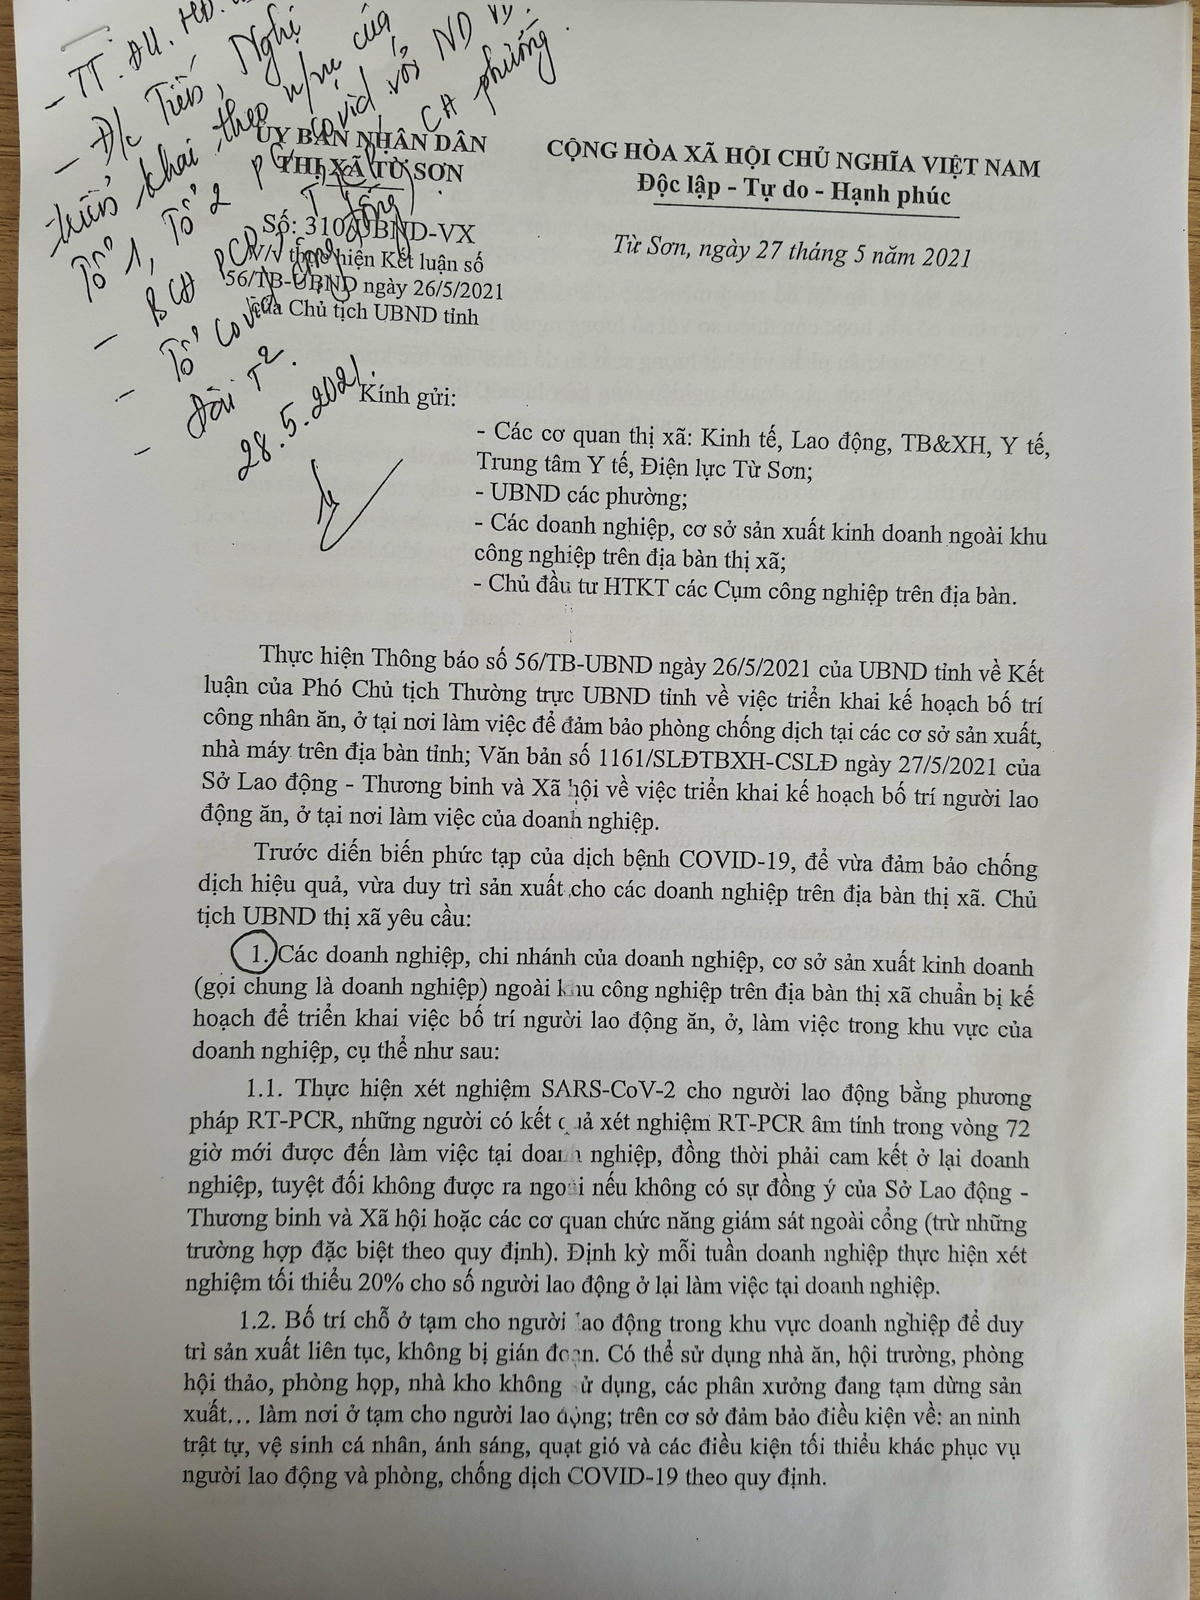 - TT. ĐU. HĐ.
- Đ/c Tiến, Nghị
triển khai theo n/vụ của
Tổ 1, Tổ 2 covid với ND
CA phường.
- BCĐ PCD
- Tổ Covid cộng đồng
- Đài T2.
28.5.2021.
ỦY BAN NHÂN DÂN
THỊ XÃ TỪ SƠN
CỘNG HÒA XÃ HỘI CHỦ NGHĨA VIỆT NAM
Độc lập - Tự do - Hạnh phúc
Số: 310/UBND-VX
V/v thực hiện Kết luận số
56/TB-UBND ngày 26/5/2021
của Chủ tịch UBND tỉnh
Từ Sơn, ngày 27 tháng 5 năm 2021
Kính gửi:
- Các cơ quan thị xã: Kinh tế, Lao động, TB&XH, Y tế,
Trung tâm Y tế, Điện lực Từ Sơn;
- UBND các phường;
- Các doanh nghiệp, cơ sở sản xuất kinh doanh ngoài khu
công nghiệp trên địa bàn thị xã;
- Chủ đầu tư HTKT các Cụm công nghiệp trên địa bàn.
Thực hiện Thông báo số 56/TB-UBND ngày 26/5/2021 của UBND tỉnh về Kết
luận của Phó Chủ tịch Thường trực UBND tỉnh về việc triển khai kế hoạch bố trí
công nhân ăn, ở tại nơi làm việc để đảm bảo phòng chống dịch tại các cơ sở sản xuất,
nhà máy trên địa bàn tỉnh; Văn bản số 1161/SLĐTBXH-CSLĐ ngày 27/5/2021 của
Sở Lao động - Thương binh và Xã hội về việc triển khai kế hoạch bố trí người lao
động ăn, ở tại nơi làm việc của doanh nghiệp.
Trước diễn biến phức tạp của dịch bệnh COVID-19, để vừa đảm bảo chống
dịch hiệu quả, vừa duy trì sản xuất cho các doanh nghiệp trên địa bàn thị xã. Chủ
tịch UBND thị xã yêu cầu:
1. Các doanh nghiệp, chi nhánh của doanh nghiệp, cơ sở sản xuất kinh doanh
(gọi chung là doanh nghiệp) ngoài khu công nghiệp trên địa bàn thị xã chuẩn bị kế
hoạch để triển khai việc bố trí người lao động ăn, ở, làm việc trong khu vực của
doanh nghiệp, cụ thể như sau:
1.1. Thực hiện xét nghiệm SARS-CoV-2 cho người lao động bằng phương
pháp RT-PCR, những người có kết quả xét nghiệm RT-PCR âm tính trong vòng 72
giờ mới được đến làm việc tại doanh nghiệp, đồng thời phải cam kết ở lại doanh
nghiệp, tuyệt đối không được ra ngoài nếu không có sự đồng ý của Sở Lao động -
Thương binh và Xã hội hoặc các cơ quan chức năng giám sát ngoài cổng (trừ những
trường hợp đặc biệt theo quy định). Định kỳ mỗi tuần doanh nghiệp thực hiện xét
nghiệm tối thiểu 20% cho số người lao động ở lại làm việc tại doanh nghiệp.
1.2. Bố trí chỗ ở tạm cho người lao động trong khu vực doanh nghiệp để duy
trì sản xuất liên tục, không bị gián đoạn. Có thể sử dụng nhà ăn, hội trường, phòng
hội thảo, phòng họp, nhà kho không sử dụng, các phân xưởng đang tạm dừng sản
xuất… làm nơi ở tạm cho người lao động; trên cơ sở đảm bảo điều kiện về: an ninh
trật tự, vệ sinh cá nhân, ánh sáng, quạt gió và các điều kiện tối thiểu khác phục vụ
người lao động và phòng, chống dịch COVID-19 theo quy định.